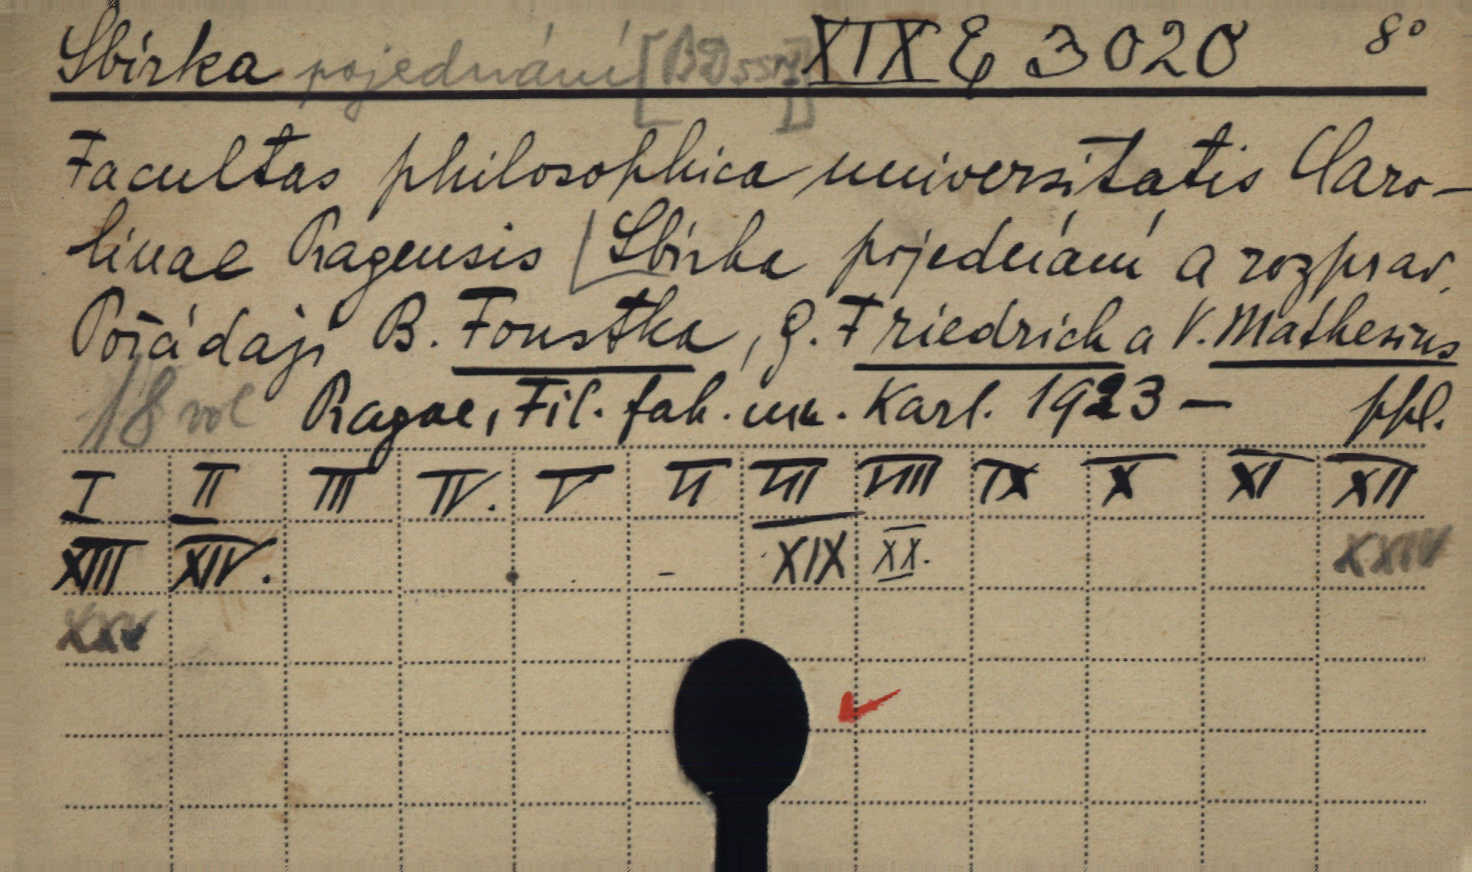 Sbírka pojednání XIX E 3020 8°
Facultas philosophica universitatis Caro-
linae Pragensis [Sbírka pojednání a rozprav.
Pořádají B. Foustka, G. Friedrich a V. Mathesius
18 vol Pragae, Fil. fak. un. Karl. 1923 — ppl.
I II III IV. V VI VII VIII IX X XI XII
XIII XIV. XIX XX. XXIV
XXV